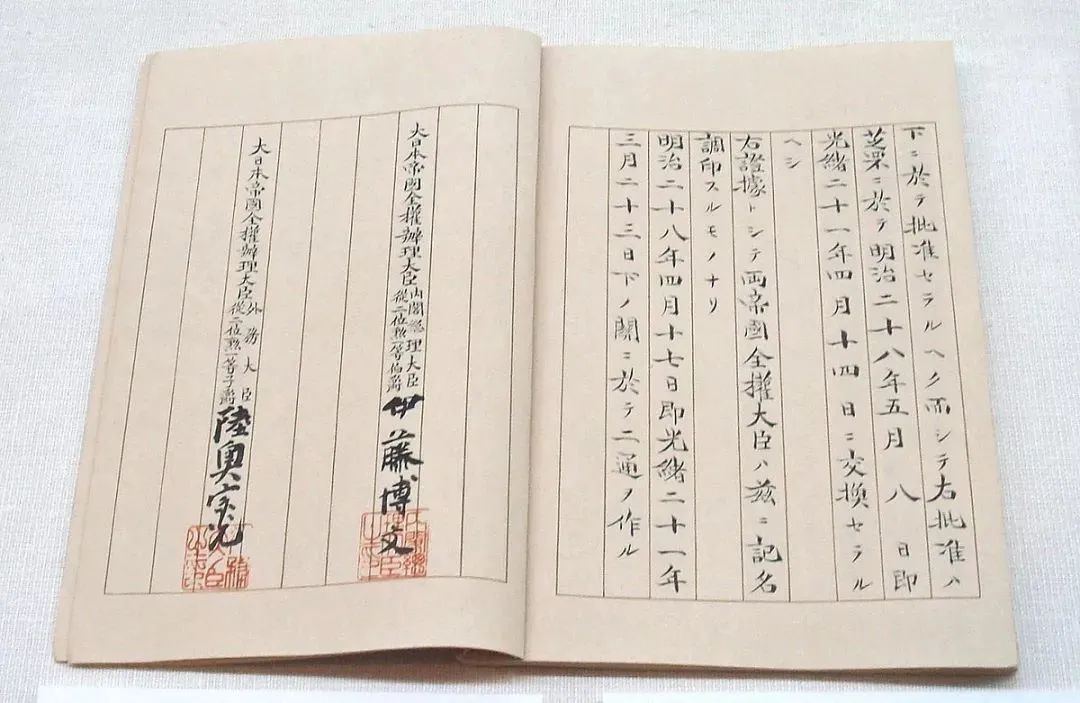 下ニ於テ批准セラルヘク而シテ右批准ハ
芝罘ニ於テ明治二十八年五月八日即
光緒二十一年四月十四日ニ交換セラル
ヘシ
右證據トシテ両帝國全權大臣ハ茲ニ記名
調印スルモノナリ
明治二十八年四月十七日即光緒二十一年
三月二十三日下ノ關ニ於テ二通ヲ作ル
大日本帝國全權辦理大臣內閣總理大臣從二位勲一等伯爵伊藤博文
大日本帝國全權辦理大臣外務大臣從二位勲一等子爵陸奥宗光